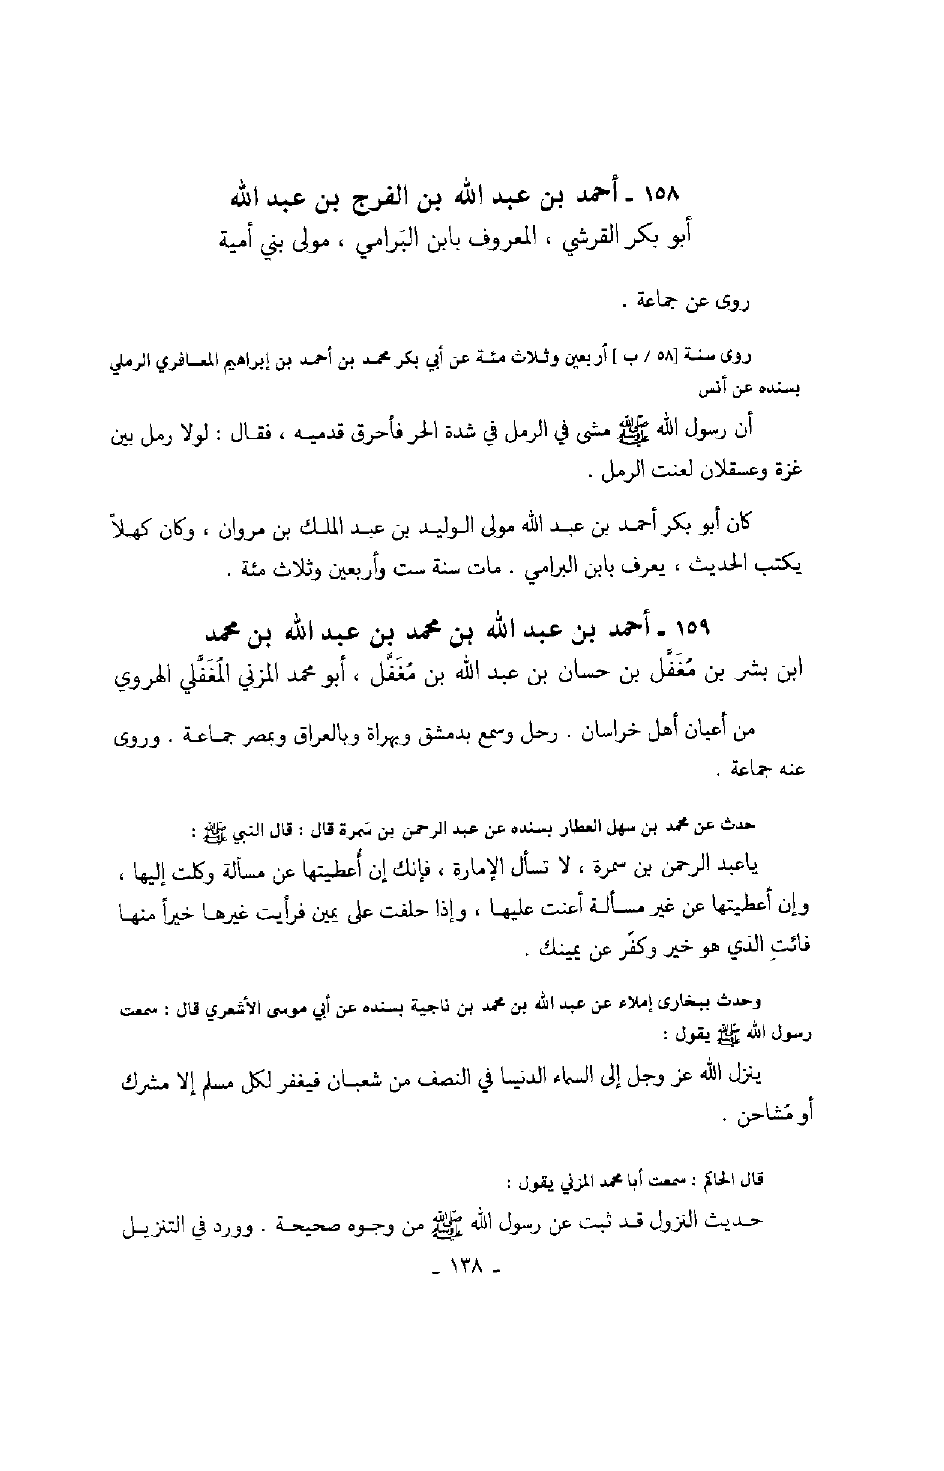 ١٥٨ ـ أحمد بن عبد الله بن الفرج بن عبد الله
أبو بكر القرشي ، المعروف بابن البَرامي ، مولى بني أمية
روى عن جماعة .
روى سنة [٥٨ / ب ] أربعين وثلاث مئة عن أبي بكر محمد بن أحمد بن إبراهيم المعافري الرملي
بسنده عن أنس
أن رسول الله ﷺ مشى في الرمل في شدة الحر فأحرق قدميه ، فقال : لولا رمل بين
غزة وعسقلان لعنت الرمل .
كان أبو بكر أحمد بن عبد الله مولى الوليد بن عبد الملك بن مروان ، وكان كهلاً
يكتب الحديث ، يعرف بابن البرامي . مات سنة ست وأربعين وثلاث مئة .
١٥٩ ـ أحمد بن عبد الله بن محمد بن عبد الله بن محمد
ابن بشر بن مُغَفَّل بن حسان بن عبد الله بن مُغَفَّل ، أبو محمد المزني المُغَفَّلي الهروي
من أعيان أهل خراسان . رحل وسمع بدمشق وبهراة وبالعراق وبمصر جماعة . وروى
عنه جماعة .
حدث عن محمد بن سهل العطار بسنده عن عبد الرحمن بن سَمِرة قال : قال النبي ﷺ :
ياعبد الرحمن بن سمرة ، لا تسأل الإمارة ، فإنك إن أُعطيتها عن مسألة وكلت إليها ،
وإن أعطيتها عن غير مسألة أعنت عليها ، وإذا حلفت على يمين فرأيت غيرها خيراً منها
فائتِ الذي هو خير وكفّر عن يمينك .
وحدث ببخارى إملاء عن عبد الله بن محمد بن ناجية بسنده عن أبي موسى الأشعري قال : سمعت
رسول الله ﷺ يقول :
ينزل الله عز وجل إلى السماء الدنيا في النصف من شعبان فيغفر لكل مسلم إلا مشرك
أو مُشاحن .
قال الحاكم : سمعت أبا محمد المزني يقول :
حديث النزول قد ثبت عن رسول الله ﷺ من وجوه صحيحة . وورد في التنزيل
ـ ١٣٨ ـ